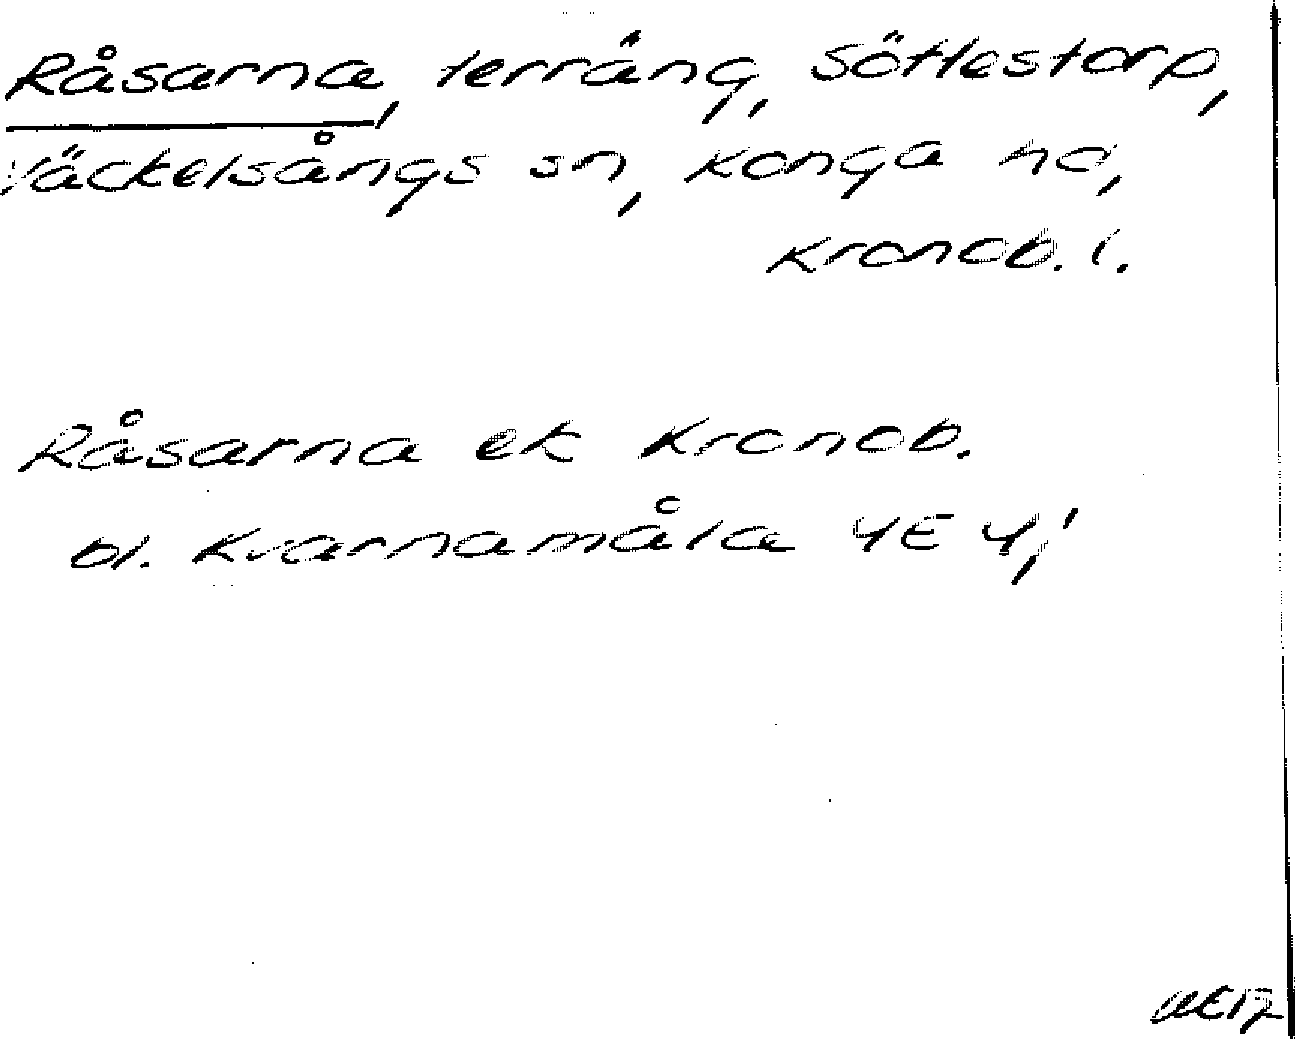 Råsarna, terräng, Söftestorp,
Väckelsångs sn, Konga hd,
Kronob. l.
Råsarna ek Kronob.
bl. Kvarnamåla 4E 4j